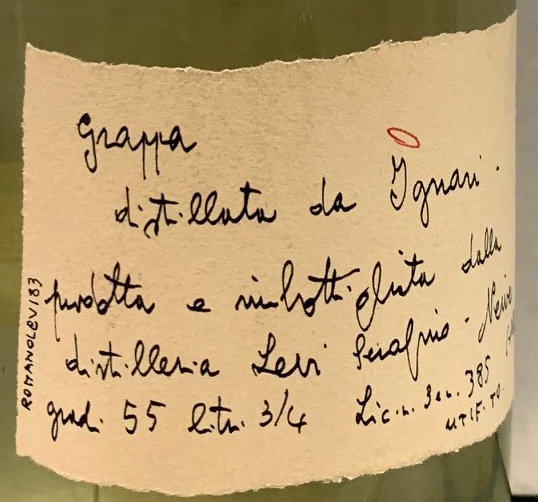 Grappa
distillata da Ignari.
prodotta e imbottigliata dalla
distilleria Levi Serafino - Neive
gradi 55 litri 3/4 Lic. n. 3 en. 385
UTIF. TO.
ROMANO LEVI 83